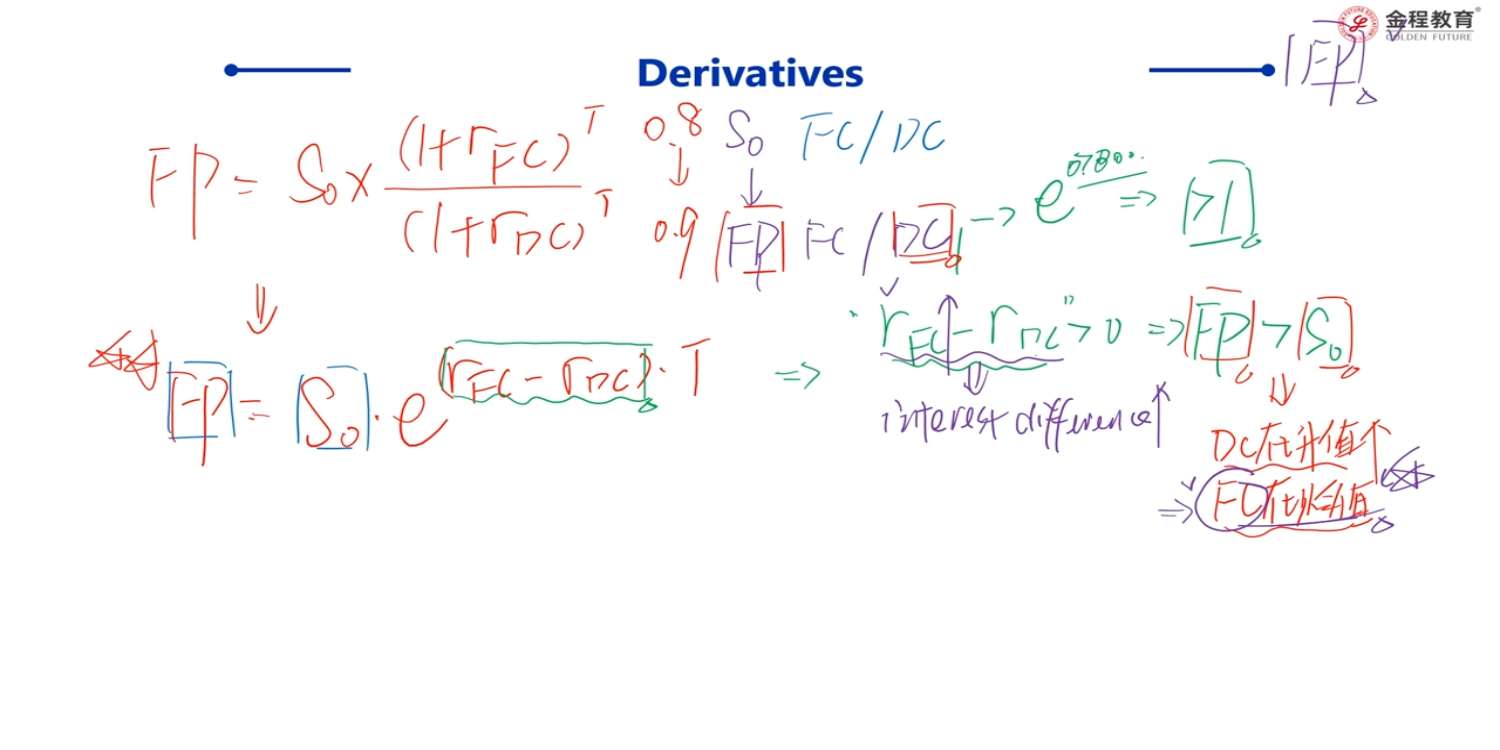 金程教育
GOLDEN FUTURE
Derivatives
|FP|
FP = S₀ × (1+r_FC)^T / (1+r_DC)^T
0.8 S₀ FC/DC
0.9 |FP| FC/|DC|
→ e ⇒ |>1|
⇓
|FP| = |S₀| · e^(r_FC − r_DC)·T
⇒ r_FC − r_DC > 0 ⇒ |FP| > |S₀|
interest difference↑
DC在升值↑
⇒ FC在贬值